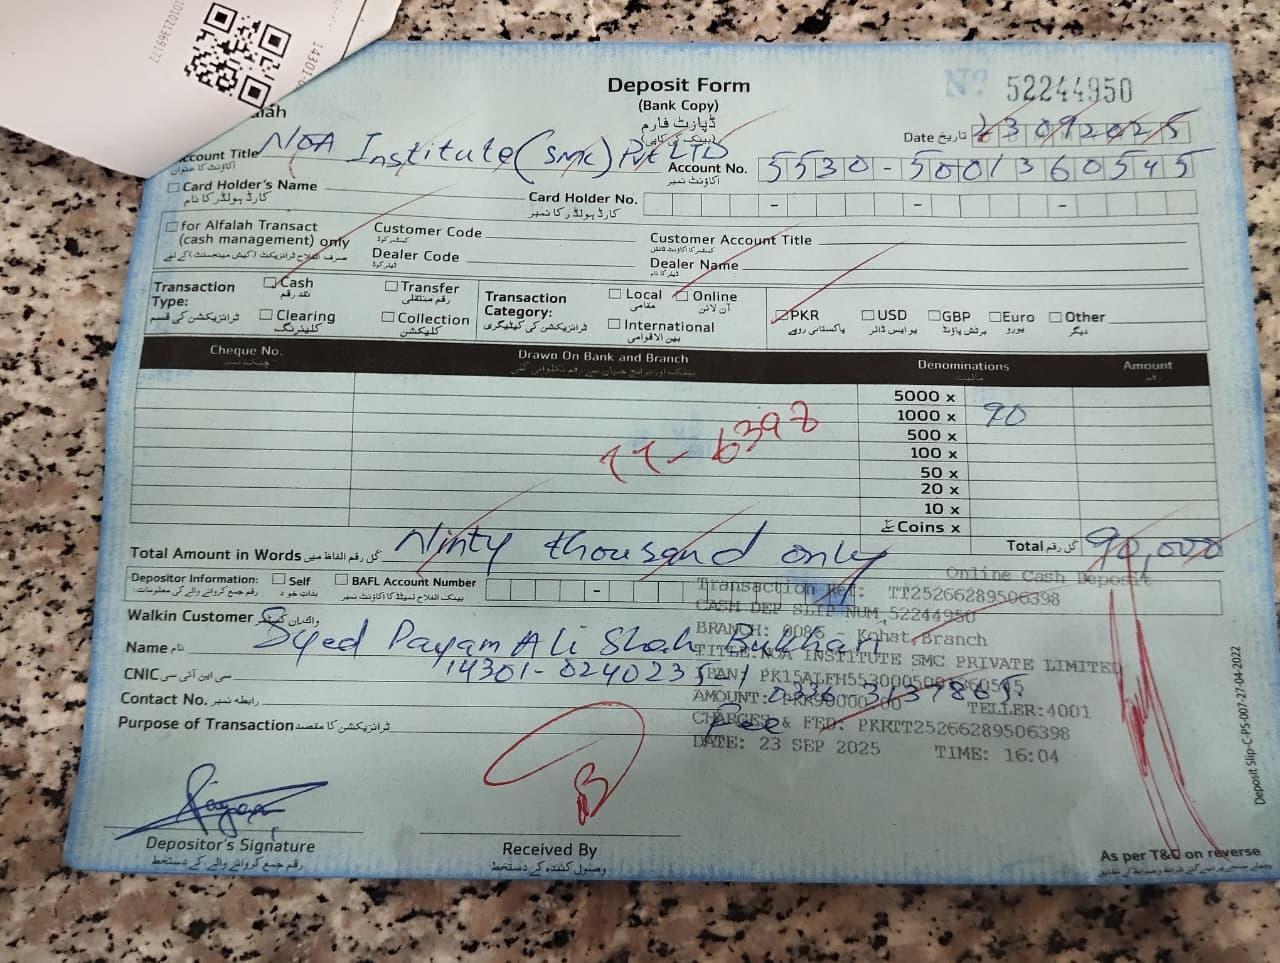 101012136917?
14301-0
Deposit Form
(Bank Copy)
ڈپازٹ فارم
(بینک کی کاپی)
Nº 52244950
Date تاریخ 23092025
alah
Account Title NOA Institute (SMC) Pvt LTD
اکاؤنٹ کا عنوان
Account No. 5530-5001360545
اکاؤنٹ نمبر
Card Holder's Name
کارڈ ہولڈر کا نام
Card Holder No.
کارڈ ہولڈر کا نمبر
for Alfalah Transact
(cash management) only
Customer Code
کسٹمر کوڈ
Customer Account Title
Dealer Code
ڈیلر کوڈ
Dealer Name
ڈیلر کا نام
Transaction Type:
ٹرانزیکشن کی قسم
Cash
نقد رقم
Transfer
رقم منتقلی
Clearing
کلیئرنگ
Collection
کلیکشن
Transaction Category:
ٹرانزیکشن کی کیٹیگری
Local
مقامی
Online
آن لائن
International
بین الاقوامی
PKR
پاکستانی روپے
USD
یو ایس ڈالر
GBP
برٹش پاؤنڈ
Euro
یورو
Other
دیگر
Cheque No.
Drawn On Bank and Branch
Denominations
Amount
رقم
5000 x
1000 x 90
500 x
100 x
50 x
20 x
10 x
سکے Coins x
TT-6398
Total Amount in Words کل رقم الفاظ میں Ninty thousand only
Total کل رقم 90,000
Depositor Information:
رقم جمع کروانے والے کی معلومات
Self
بذات خود
BAFL Account Number
Walkin Customer واک ان کسٹمر
Name نام Syed Payam Ali Shah Bukhari
CNIC سی این آئی سی 14301-0240235
Contact No. رابطہ نمبر 0336-3137865
Purpose of Transaction ٹرانزیکشن کا مقصد Fee
Online Cash Deposit
Transaction Ref: TT25266289506398
CASH DEP SLIP NUM 52244950
BRANCH: 0085 - Kohat Branch
TITLE:NOA INSTITUTE SMC PRIVATE LIMITED
AMOUNT: PKR90000.00
TELLER:4001
CHARGES & FED: PKRTT25266289506398
DATE: 23 SEP 2025 TIME: 16:04
Depositor's Signature
رقم جمع کروانے والے کے دستخط
Received By
وصول کنندہ کے دستخط
As per T&C on reverse
Deposit Slip-C-PS-007-27-04-2022